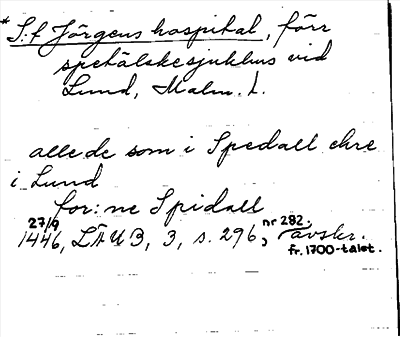 * S:t Jörgens hospital, förr
spetälskesjukhus vid
Lund, Malm. l.
alle de som i Spedall ehre
i Lund
for: ne Spidall
27/9 nr 282.
1446, LÄUB, 3, s. 296, avskr.
fr. 1700-talet.